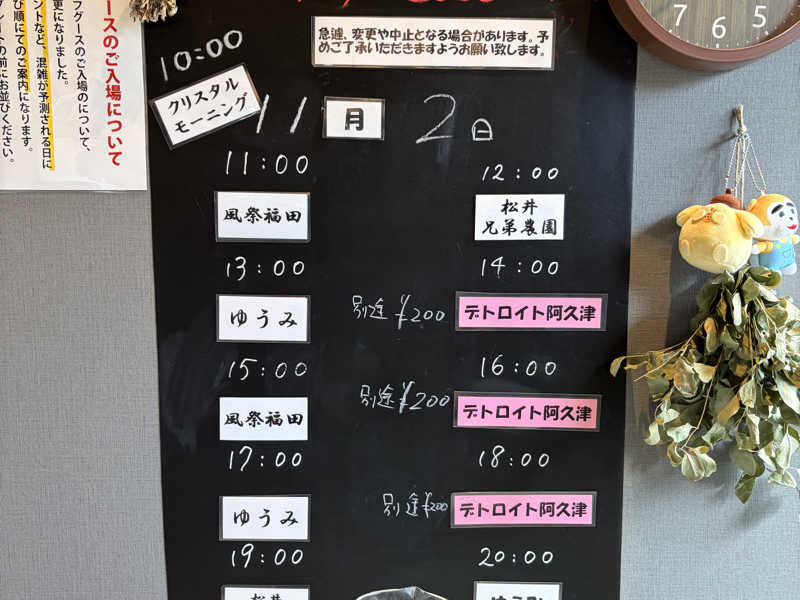 ースのご入場について
フグースのご入場のについて、
更になりました。
ントなど、混雑が予測される日に
び順にてのご案内になります。
の前にお並びください。
急遽、変更や中止となる場合があります。予
めご了承いただきますようお願い致します。
7 6 5
10:00
クリスタル
モーニング
11 月 2日
11:00
風祭福田
12:00
松井
兄弟農園
13:00
ゆうみ
14:00
別途¥200 デトロイト阿久津
15:00
風祭福田
16:00
別途¥200 デトロイト阿久津
17:00
ゆうみ
18:00
別途¥200 デトロイト阿久津
19:00
松井
20:00
ゆうみ